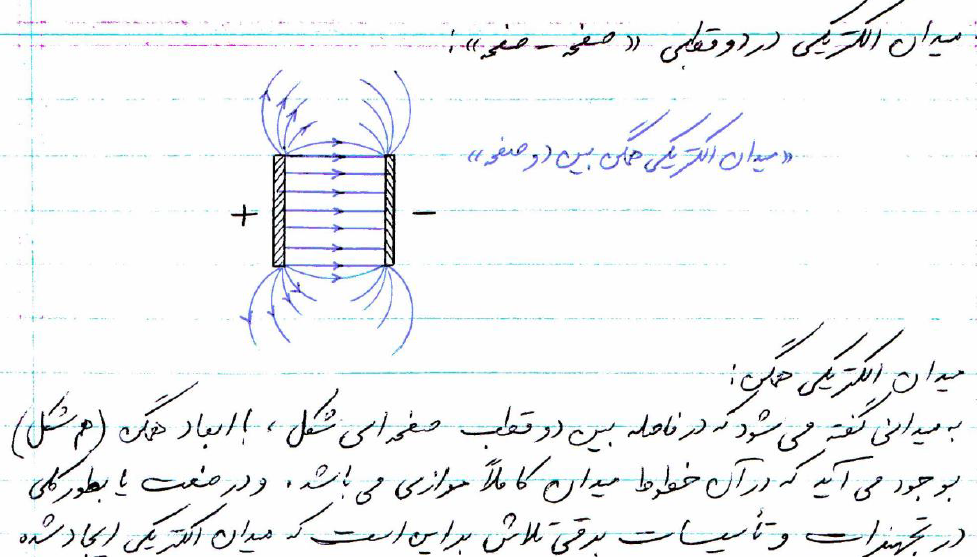 میدان الکتریکی در دو قطبی «صفحه - صفحه»:
«میدان الکتریکی همگن بین دو صفحه»
+ −
میدان الکتریکی همگن:
به میدانی گفته می شود که در فاصله بین دو قطب صفحه ای شکل ، با ابعاد همگن (هم شکل)
بوجود می آید که در آن خطوط میدان کاملاً موازی می باشد. و در صنعت یا بطور کلی
در تجهیزات و تأسیسات برقی تلاش بر این است که میدان الکتریکی ایجاد شده